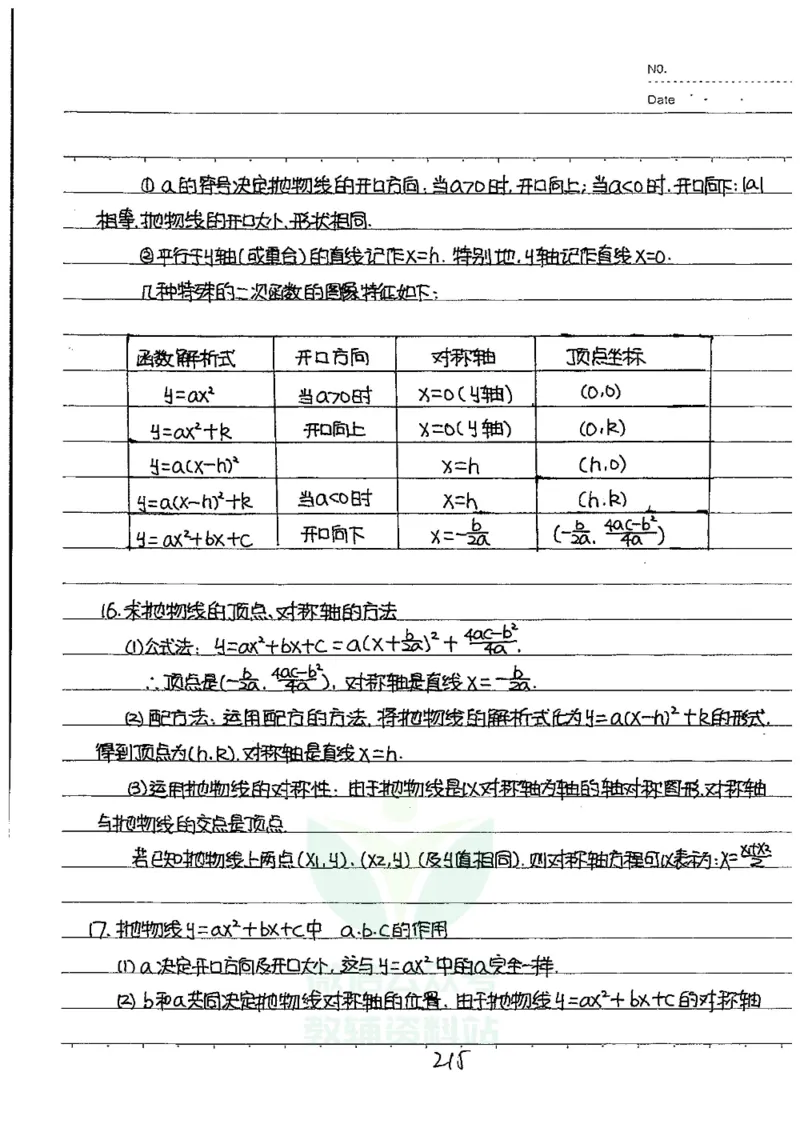 NO.
Date
① a的符号决定抛物线的开口方向:当a>0时,开口向上;当a<0时,开口向下;|a|
相等,抛物线的开口大小、形状相同.
②平行于y轴(或重合)的直线记作x=h.特别地,y轴记作直线x=0.
几种特殊的二次函数的图像特征如下:
函数解析式 开口方向 对称轴 顶点坐标
y=ax² 当a>0时 x=0(y轴) (0,0)
y=ax²+k 开口向上 x=0(y轴) (0,k)
y=a(x-h)² x=h (h,0)
y=a(x-h)²+k 当a<0时 x=h (h,k)
y=ax²+bx+c 开口向下 x=-b/2a (-b/2a, 4ac-b²/4a)
16.求抛物线的顶点、对称轴的方法
(1)公式法: y=ax²+bx+c=a(x+b/2a)²+4ac-b²/4a.
∴顶点是(-b/2a, 4ac-b²/4a),对称轴是直线x=-b/2a.
(2)配方法:运用配方的方法,将抛物线的解析式化为y=a(x-h)²+k的形式,
得到顶点为(h,k),对称轴是直线x=h.
(3)运用抛物线的对称性:由于抛物线是以对称轴为轴的轴对称图形,对称轴
与抛物线的交点是顶点.
若已知抛物线上两点(x₁,y)、(x₂,y)(及y值相同),则对称轴方程可以表示为:x=x₁+x₂/2
17.抛物线y=ax²+bx+c中 a.b.c的作用
(1)a决定开口方向及开口大小,这与y=ax²中的a完全一样.
(2)b和a共同决定抛物线对称轴的位置.由于抛物线y=ax²+bx+c的对称轴
教辅资料站
215